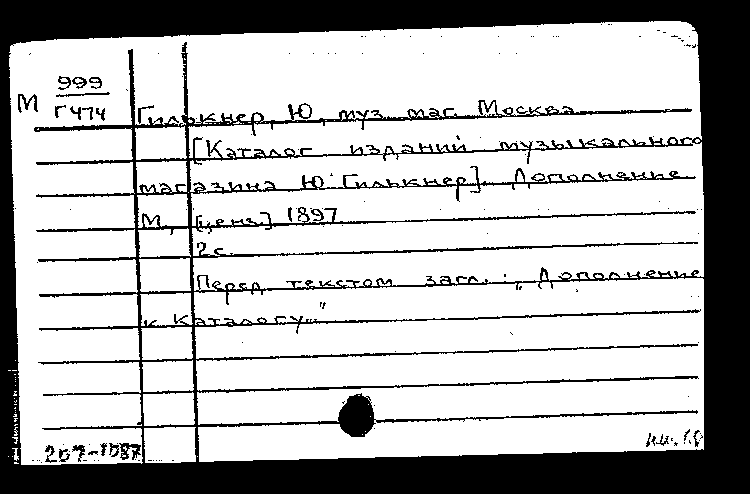 М 999
Г474
Гилькнер, Ю, муз маг. Москва
[Каталог изданий музыкального
магазина Ю. Гилькнер]. Дополнение
М, [ценз.] 1897
2с.
Перед текстом загл.: „Дополнение
к Каталогу..."
207-1087